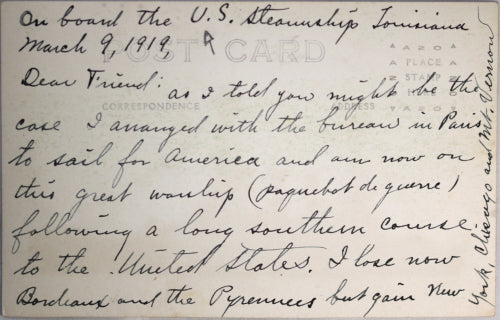 On board the U.S. Steamship Louisiana
March 9, 1919,
POST CARD
AZO
PLACE
STAMP
AZO
Dear Friend: as I told you might be the
CORRESPONDENCE
ADDRESS
case I arranged with the bureau in Paris
to sail for America and am now on
this great warship (paquebot de guerre)
following a long southern course
to the United States. I lose now
Bordeaux and the Pyrennees but gain New
York, Chicago and Mt. Vernon